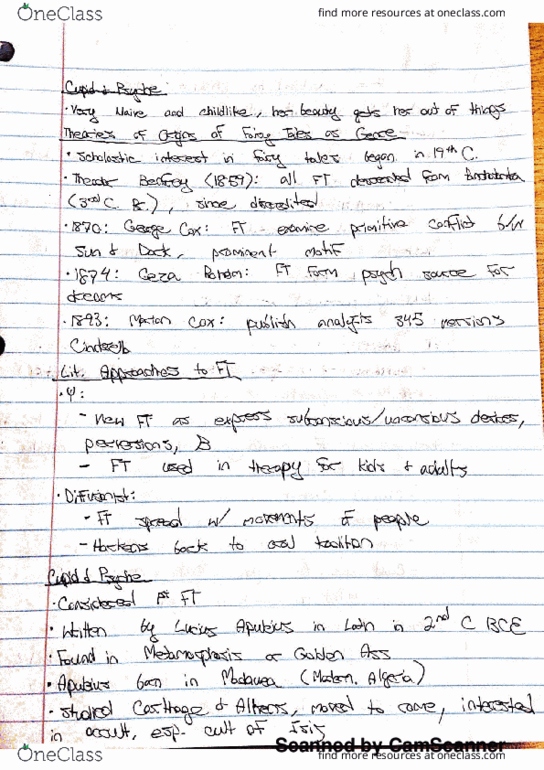 OneClass find more resources at oneclass.com
Cupid & Psyche:
· Very Naive and childlike, her beauty gets her out of things
Theories of Origins of Fairy Tales as Genre
· Scholastic interest in fairy tales began in 19th C.
· Theodor Benfey (1859): all FT descended from
(3rd C. BC.), since discredited
· 1870: George Cox: FT examine primitive conflict b/w
Sun & Dark, prominent motif
· 1874: Geza : FT form psych source for
dreams
· 1893: Marian Cox: publish analysis 345 versions
Cinderella
Lit. Approaches to FT
· Ψ:
- View FT as express subconscious/unconscious desires,
- FT used in therapy for kids & adults
· Diffusionist:
- FT spread w/ movements of people
- Harkens back to oral tradition
Cupid & Psyche
· Considered 1st FT
· Written by Lucius Apuleius in Latin in 2nd C BCE
· Found in Metamorphosis or Golden Ass
· Apuleius born in Madaura (Modern Algeria)
· Studied Carthage & Athens, moved to rome, interested
in occult, esp. cult of Isis
Scanned by CamScanner
OneClass find more resources at oneclass.com